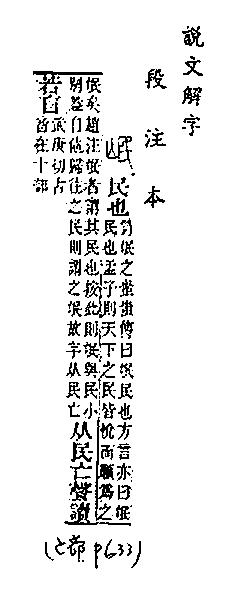 說文解字
段注本
氓 民也
詩氓之蚩蚩傳曰氓民也方言亦曰氓
民也孟子則天下之民皆悅而願爲之
氓矣趙注氓者謂其民也按此則氓與民小
別葢自他歸往之民則謂之氓故字从民亡
从民亡聲讀
若盲
武庚切古
音在十部
(部 p633)